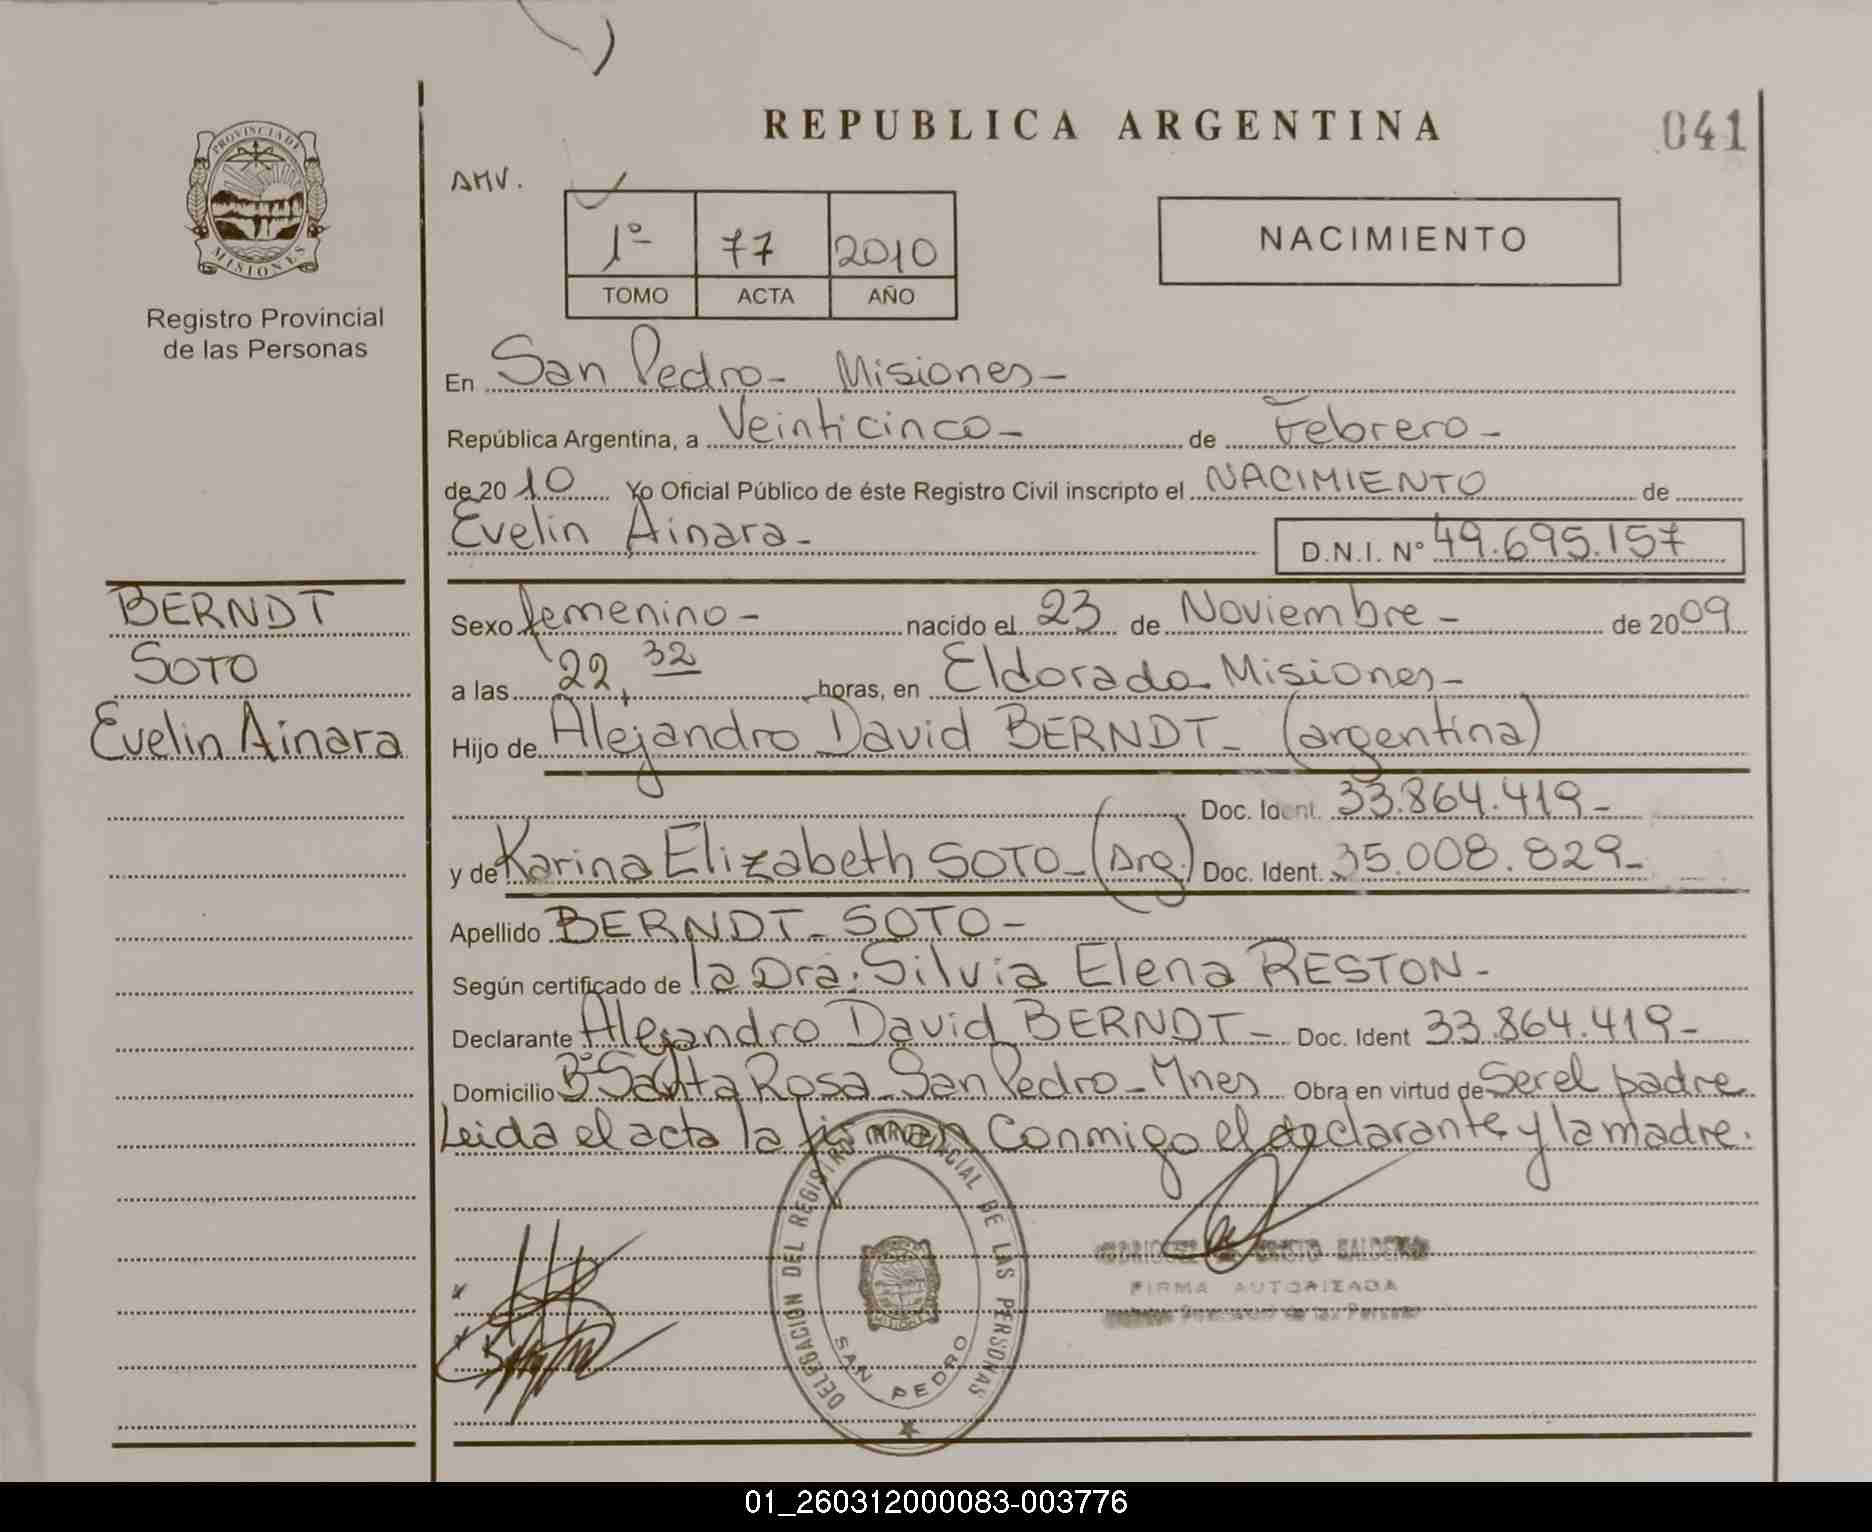 REPUBLICA ARGENTINA
041
PROVINCIA DE
MISIONES
Registro Provincial
de las Personas
AMV.
1º 77 2010
TOMO ACTA AÑO
NACIMIENTO
En San Pedro - Misiones -
República Argentina, a Veinticinco - de Febrero -
de 2010 Yo Oficial Público de éste Registro Civil inscripto el NACIMIENTO de
Evelin Ainara -
D.N.I. Nº 49.695.157
BERNDT
SOTO
Evelin Ainara
Sexo femenino - nacido el 23 de Noviembre - de 2009
a las 22,32 horas, en Eldorado - Misiones -
Hijo de Alejandro David BERNDT - (argentina)
Doc. Ident. 33.864.419 -
y de Karina Elizabeth SOTO - (Arg.) Doc. Ident. 35.008.829 -
Apellido BERNDT - SOTO -
Según certificado de la Dra. Silvia Elena RESTON -
Declarante Alejandro David BERNDT - Doc. Ident 33.864.419 -
Domicilio Bº Santa Rosa - San Pedro - Mnes Obra en virtud de Ser el padre
Leida el acta la firman Conmigo el declarante y la madre.
DELEGACION DEL REGISTRO PROVINCIAL DE LAS PERSONAS
MISIONES
SAN PEDRO
FIRMA AUTORIZADA
01_260312000083-003776